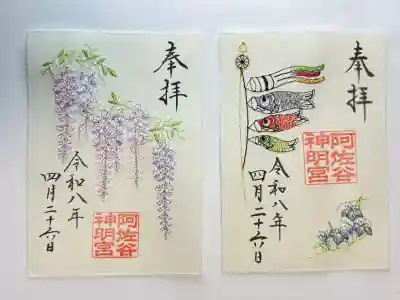 奉拝
令和八年
四月二十六日
阿佐谷
神明宮
奉拝
阿佐谷
神明宮
令和八年
四月二十六日